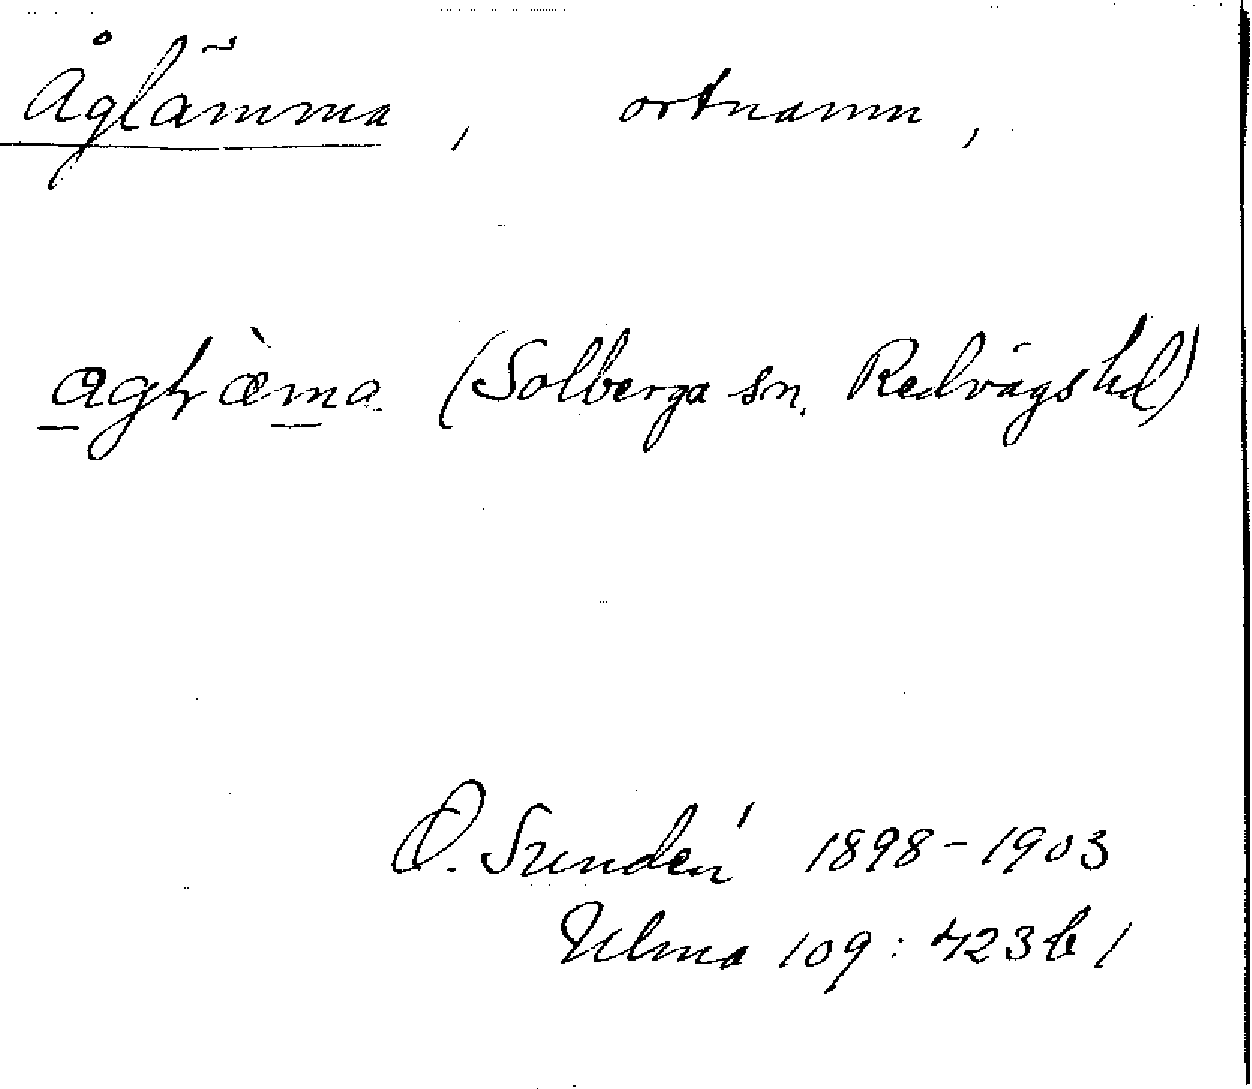 Åglämma, ortnamn,
aglæ̀ma (Solberga sn, Redvägs hd)
D. Sundén 1898-1903
Ulma 109:423 b 1